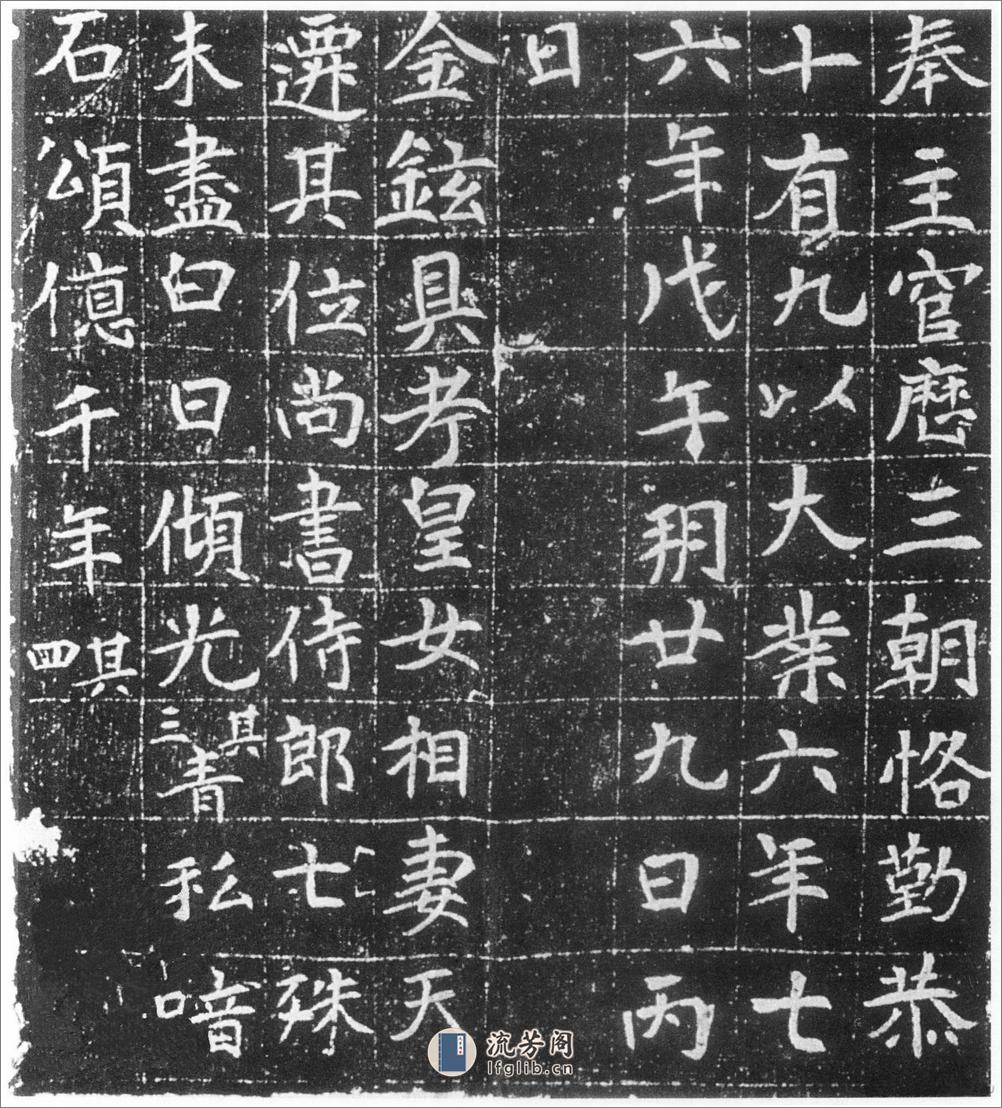 奉主官歷三朝恪勤恭
十有九以大業六年七
六年戊午朔廿九日丙
日
金鉉具考皇女相妻天
遷其位尚書侍郎七殊
未盡臼日傾光其三青私喑
石頌億千年其四
流芳阁
lfglib.cn